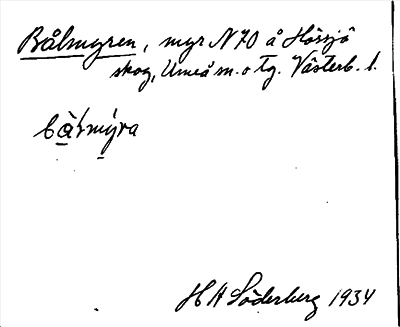 Bålmyren, myr N70 å Hössjö
skog, Umeå m. o tg. Västerb. l.
bål myra
H A Söderberg 1934